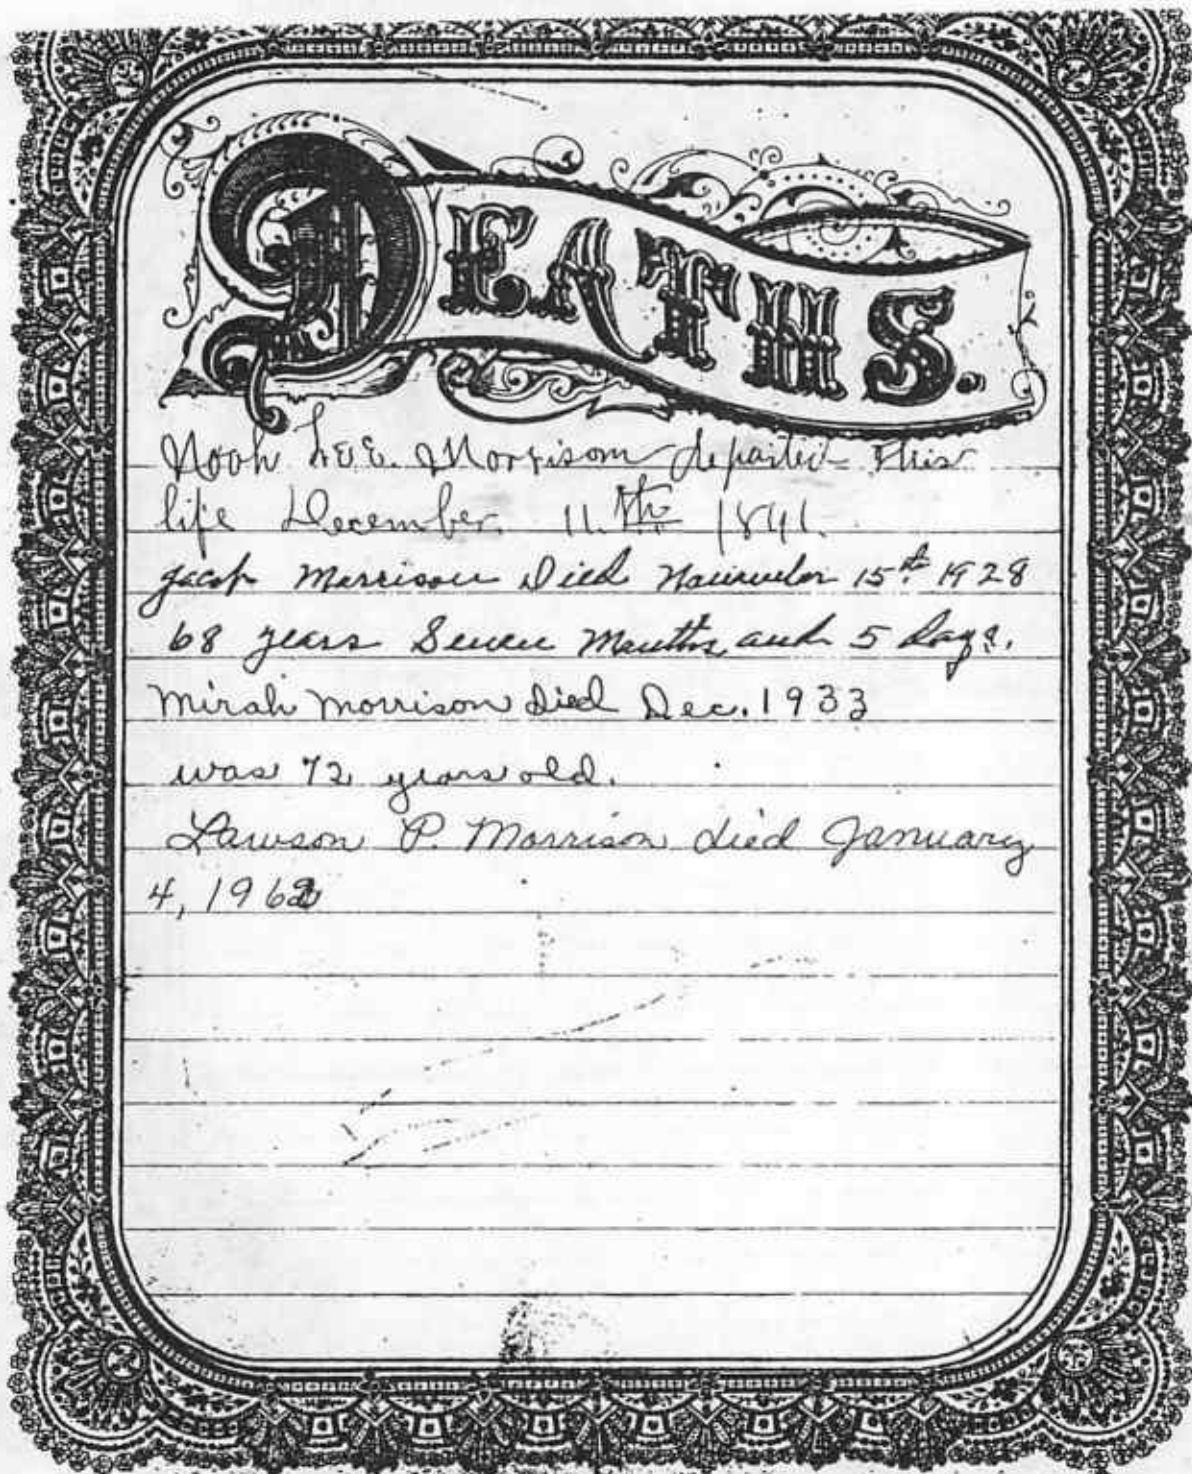 DEATHS.
Noah LEE. Morrison departed This
life December 11.th
Jacob Morrison Died November 15th 1928
68 years Seven Months and 5 Days.
Mirah Morrison Died Dec. 1933
was 72 years old.
Lawson P. Morrison died January
4, 1962